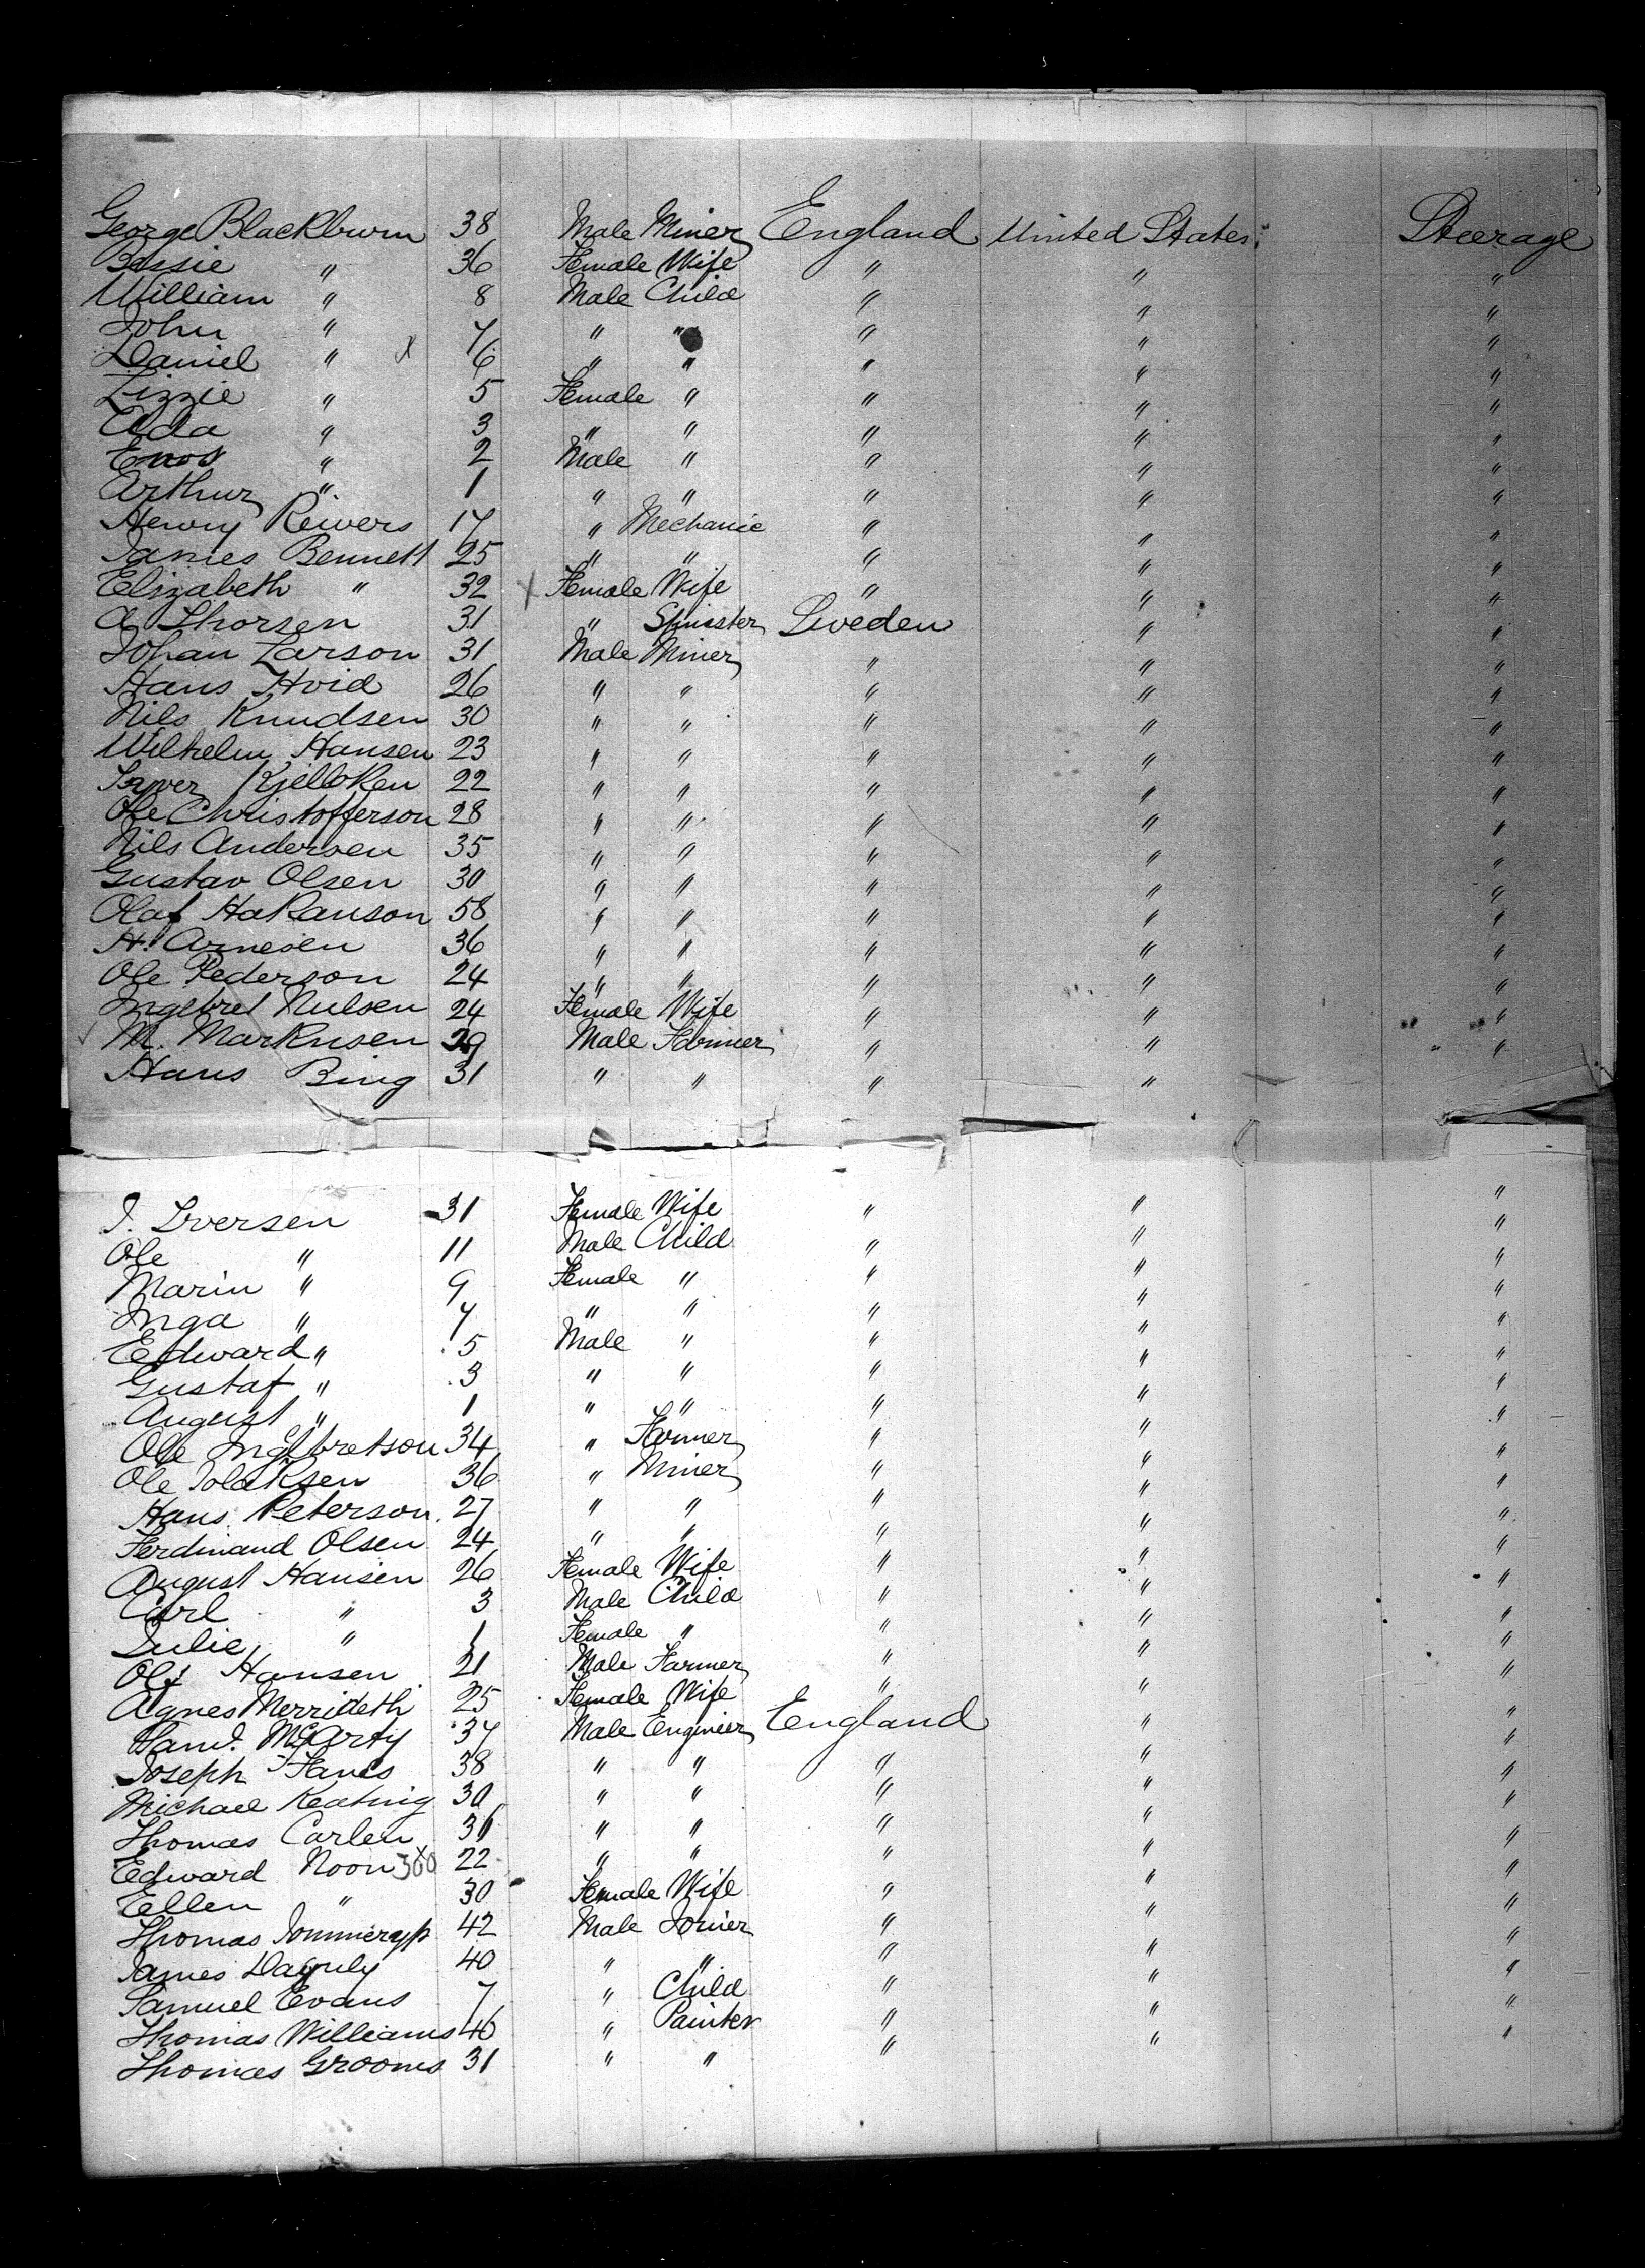 George Blackburn 38 Male Miner England United States. Steerage
Bessie " 36 Female Wife " " "
William " 8 Male Child " " "
John " 7 " " " " "
Daniel " x 6 " " " " "
Lizzie " 5 Female " " " "
Ada " 3 " " " " "
Enos " 2 Male " " " "
Arthur " 1 " " " " "
Henry Reivers 17 " Mechanic " " "
James Bennett 25 " " " " "
Elizabeth " 32 x Female Wife " " "
A Thorsen 31 " Spinster Sweden " "
Johan Larson 31 Male Miner " " "
Hans Hvid 26 " " " " "
Nils Knudsen 30 " " " " "
Wilhelm Hansen 23 " " " " "
22 " " " " "
Ole Christofferson 28 " " " " "
Nils Andersen 35 " " " " "
Gustav Olsen 30 " " " " "
Olaf Hakanson 58 " " " " "
H. Arnesen 36 " " " " "
Ole Pederson 24 " " " " "
Ingebret Nulsen 24 Female Wife " " "
M. Markusen 29 Male Farmer " " "
Hans Bing 31 " " " "
I. Iversen 31 Female Wife " " "
Ole " 11 Male Child " " "
Marin " 9 Female " " " "
Inga " 7 " " " " "
Edward " 5 Male " " " "
Gustaf " 3 " " " " "
August " 1 " " " " "
Ole Ingebretson 34 " Farmer " " "
Ole 36 " Miner " " "
Hans Peterson 27 " " " " "
Ferdinand Olsen 24 " " " " "
August Hansen 26 Female Wife " " "
Carl " 3 Male Child " " "
Julie " 1 Female " " " "
Olf Hansen 21 Male Farmer " " "
Agnes Merrideth 25 Female Wife " " "
Saml. McCarty 37 Male Engineer England " "
Joseph 38 " " " " "
Michael Keating 30 " " " " "
Thomas Carlen 31 " " " " "
Edward Noon 22 " " " " "
Ellen " 30 Female Wife " " "
Thomas 42 Male Joiner " " "
James 40 " " " " "
Samuel Evans 7 " Child " " "
Thomas Williams 46 " Painter " " "
Thomas Grooms 31 " " " " "